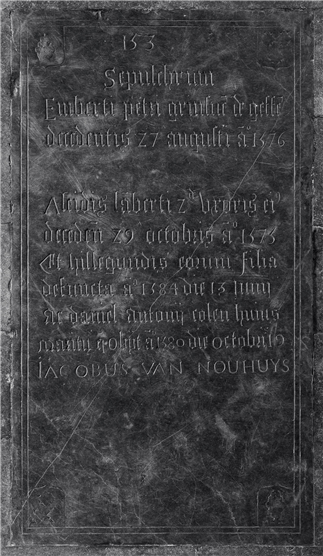 153
Sepulchrum
Emberti petri
decedentis 27 augusti aº 1576
Aleidis lāberti zº uxoris eiº
deceden̄ 29 octobris aº 1575
Et hillegundis eorum filia
defuncta aº 1584 die 13 Junij
ac daniel antonij colen huius
mariti q obijt aº 1580 die octobris
IACOBUS VAN NOUHUYS